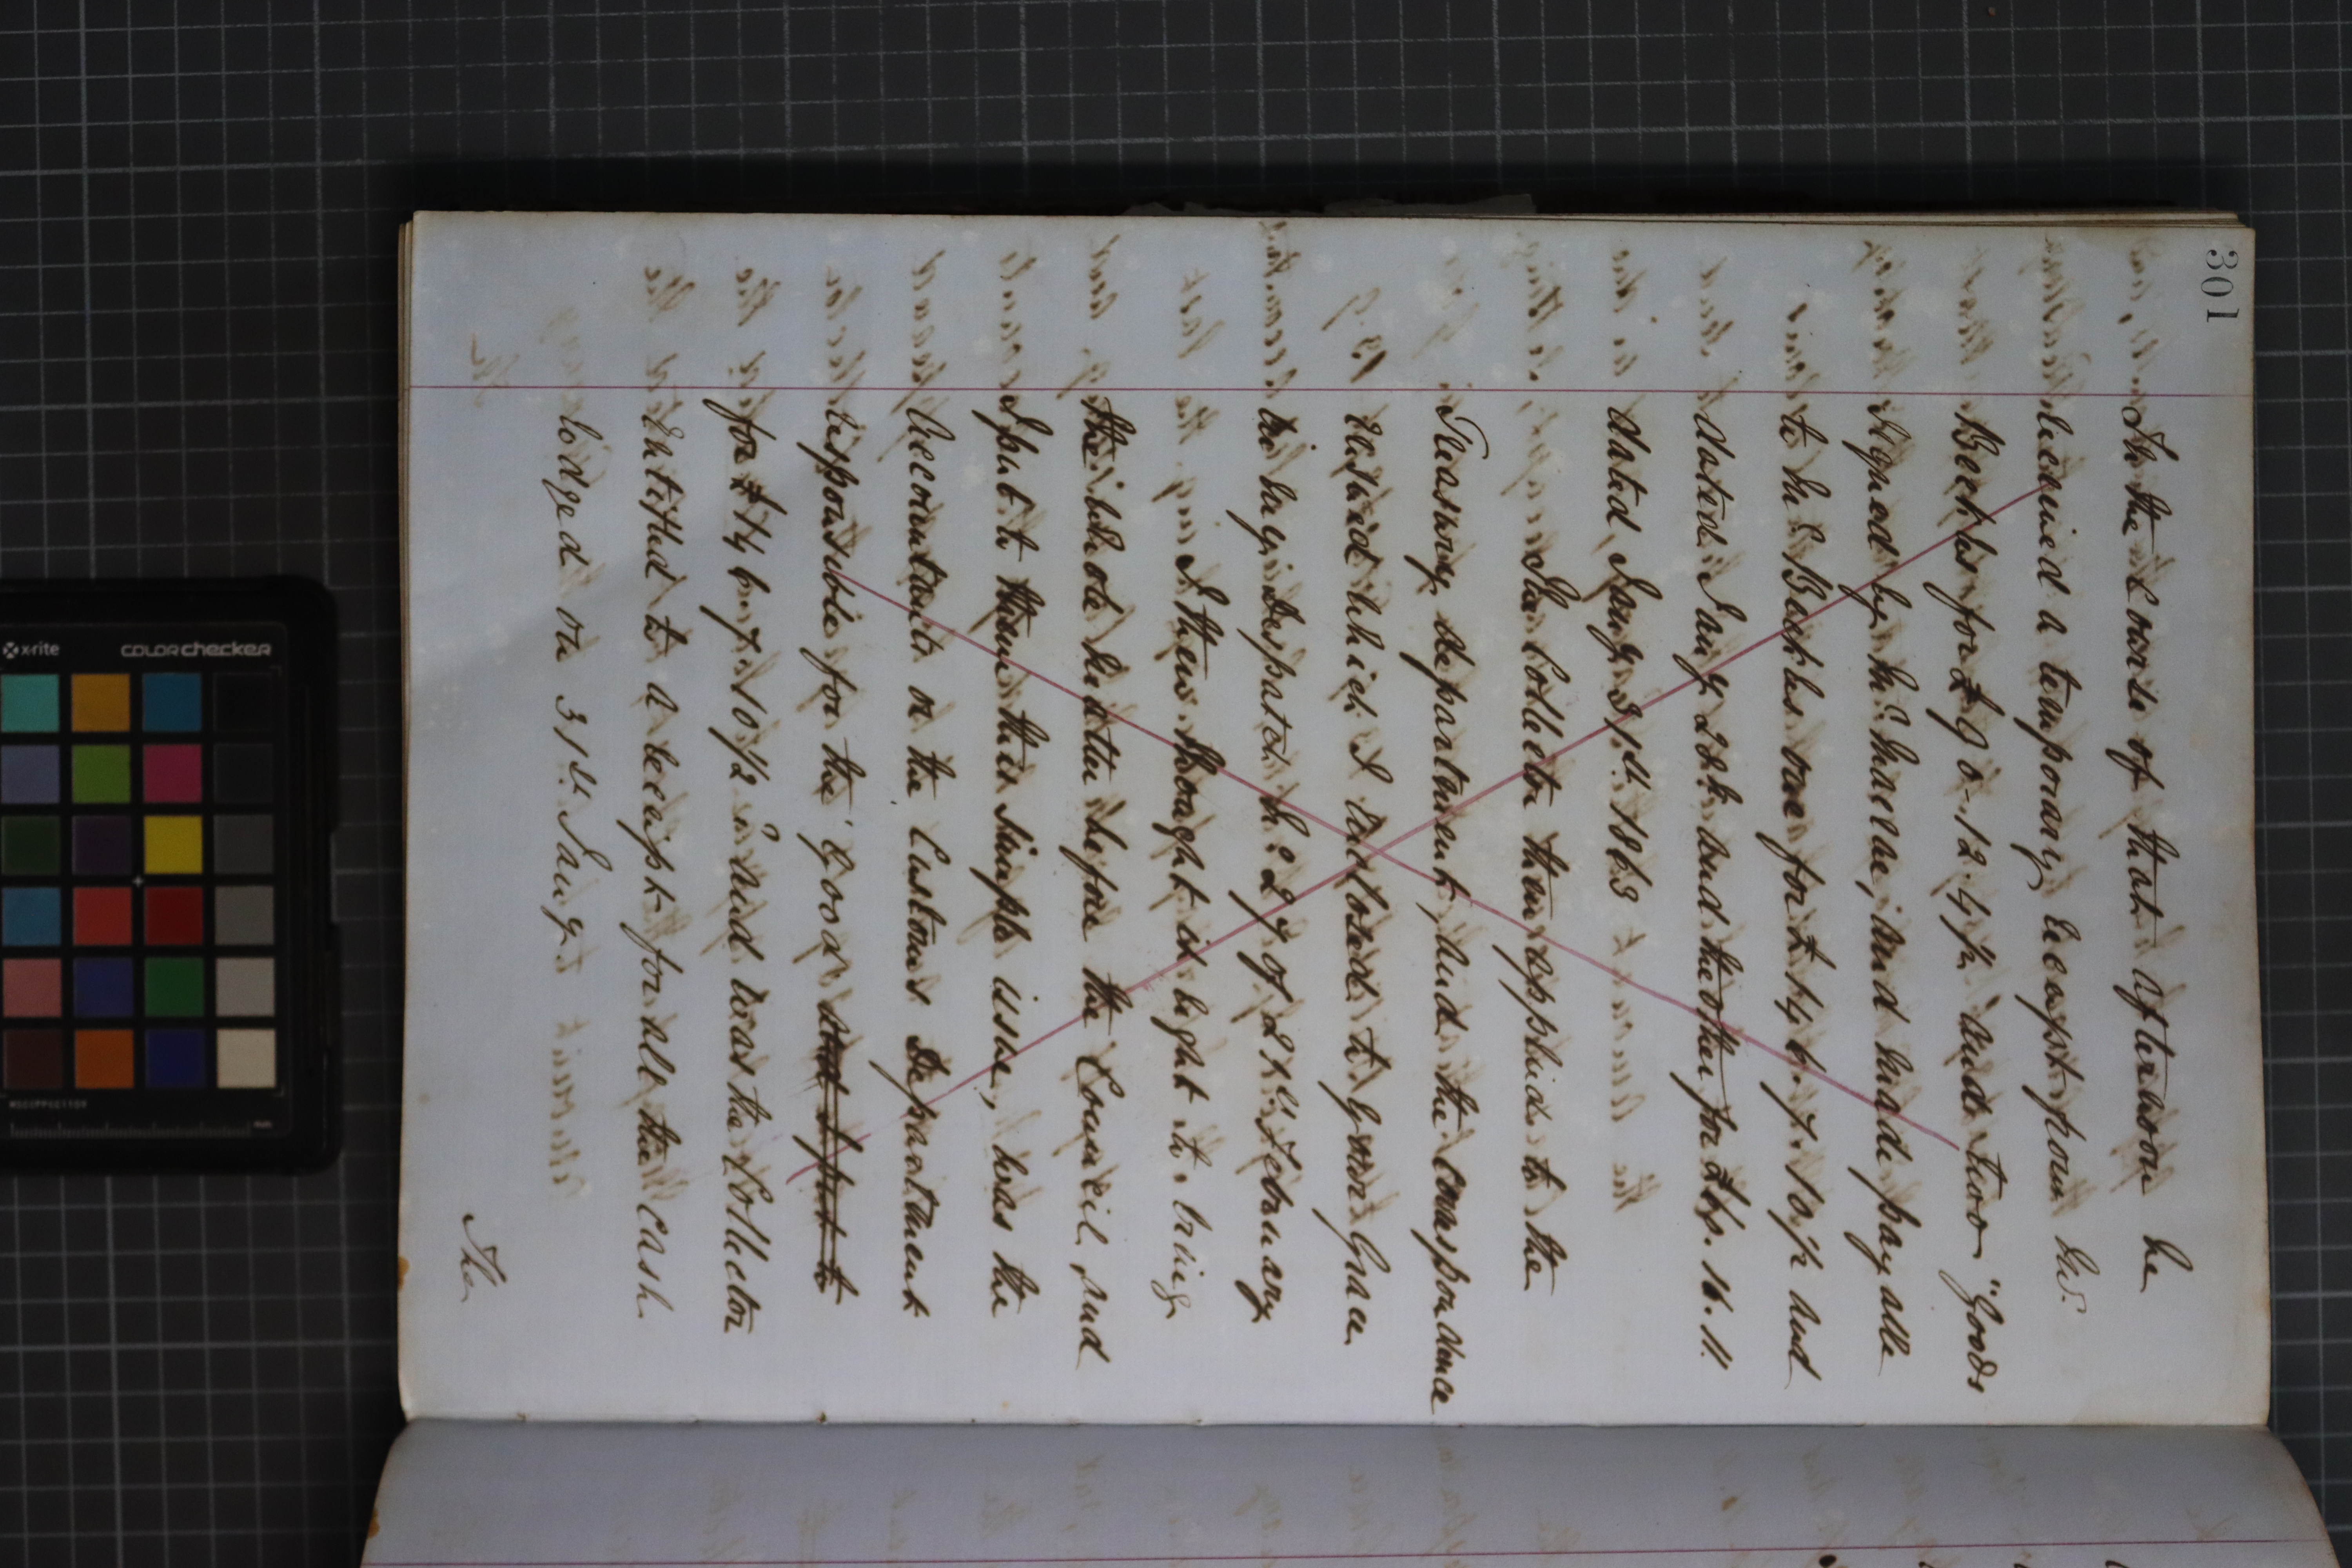 301
In the course of that afternoon he
received a temporary receipt from Mr.
Beckles for £90-12.4½ and two "Goods
signed by Mr. Macrae, and made payable
to Mr. Beckles one for £146.7.10½ and
dated Jany 28th and the other for £60.16.11.
dated Jany 31st. 1863
The Collector then applied to the
Treasury department, and the correspondence
ensued which I enclosed to Your Grace
in my Despatch No 27 of 21st February
I then thought it right to bring
the whole matter before the Council, and
I put it them this simple issue, was the
Accountant or the Customs Department
responsible for the Good and I put it
for £146.7.10½ and was the Collector
entitled to a receipt for all the cash
lodged on 31st Jany.
The